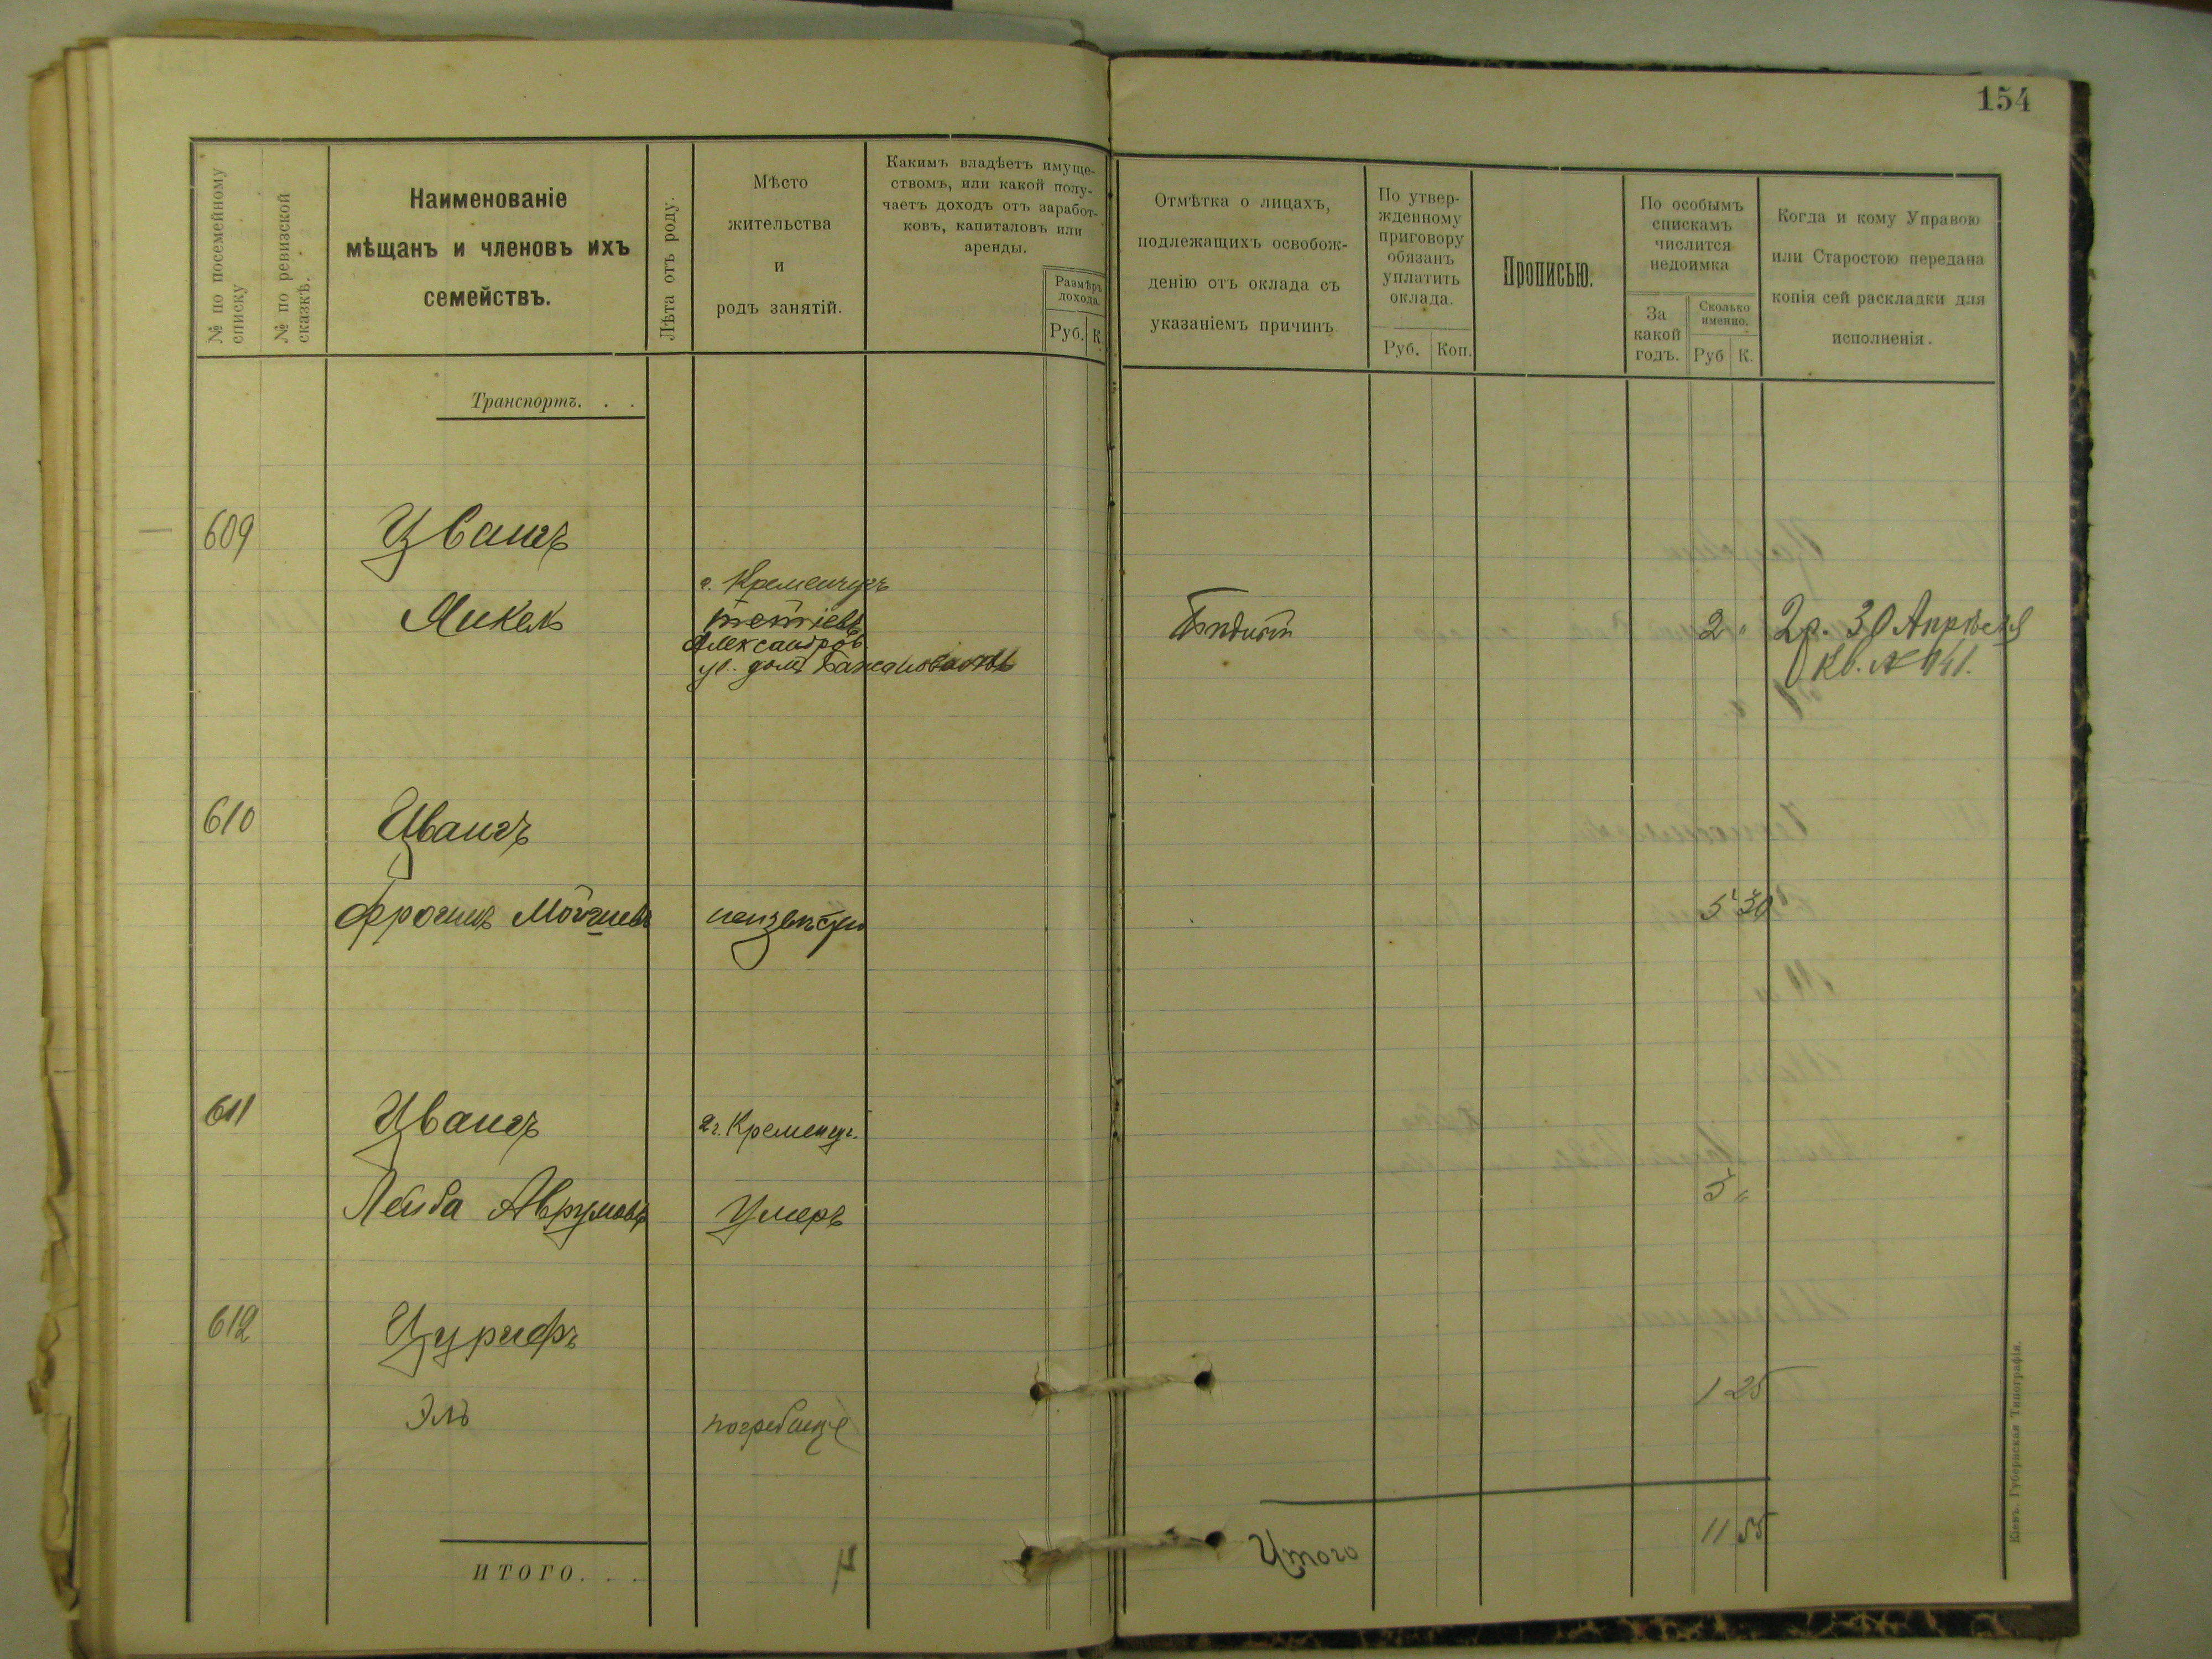 154
№ по посемейному
списку
№ по ревизской
сказкѣ.
Наименованіе
мѣщанъ и членовъ ихъ
семействъ.
Лѣта отъ роду.
Мѣсто
жительства
и
родъ занятій.
Какимъ владѣетъ имуще-
ствомъ, или какой полу-
чаетъ доходъ отъ заработ-
ковъ, капиталовъ или
аренды.
Размѣръ
дохода.
Руб. К.
Отмѣтка о лицахъ,
подлежащихъ освобож-
денію отъ оклада съ
указаніемъ причинъ.
По утвер-
жденному
приговору
обязанъ
уплатить
оклада.
Руб. Коп.
Прописью.
По особымъ
спискамъ
числится
недоимка
За
какой
годъ.
Сколько
именно.
Руб К.
Когда и кому Управою
или Старостою передана
копія сей раскладки для
исполненія.
Транспортъ. . .
609 Цвангъ
г. Кременчугъ
тетіевъ
Александров
ул. домъ
Бѣдность
2 " 2р. 30 Апрѣля
Кв. № 141.
610 Цвангъ
Фроимъ неизвѣстно 5 30
611 Цвангъ г. Кременчуг.
Лейба Аврумовъ Умеръ 5 "
612
Эль погребище 1 25
ИТОГО. . .
Итого 11 55
Кіевъ. Губернская Типографія.